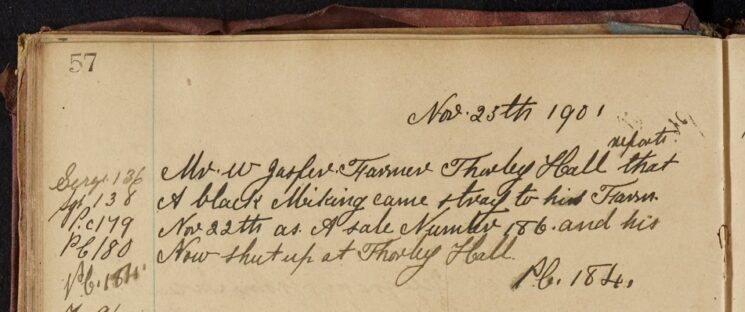 57
Nov. 25th 1901
reports
Mr. W Jasper Farmer Thorley Hall that
A black Meiking came stray to his Farm
Nov 22th as A sale Number 186. and his
Now shut up at Thorley Hall.
P.C. 184.
Sergt 136
Sgt 138
P.c 179
P.C 180
P.C. 184.